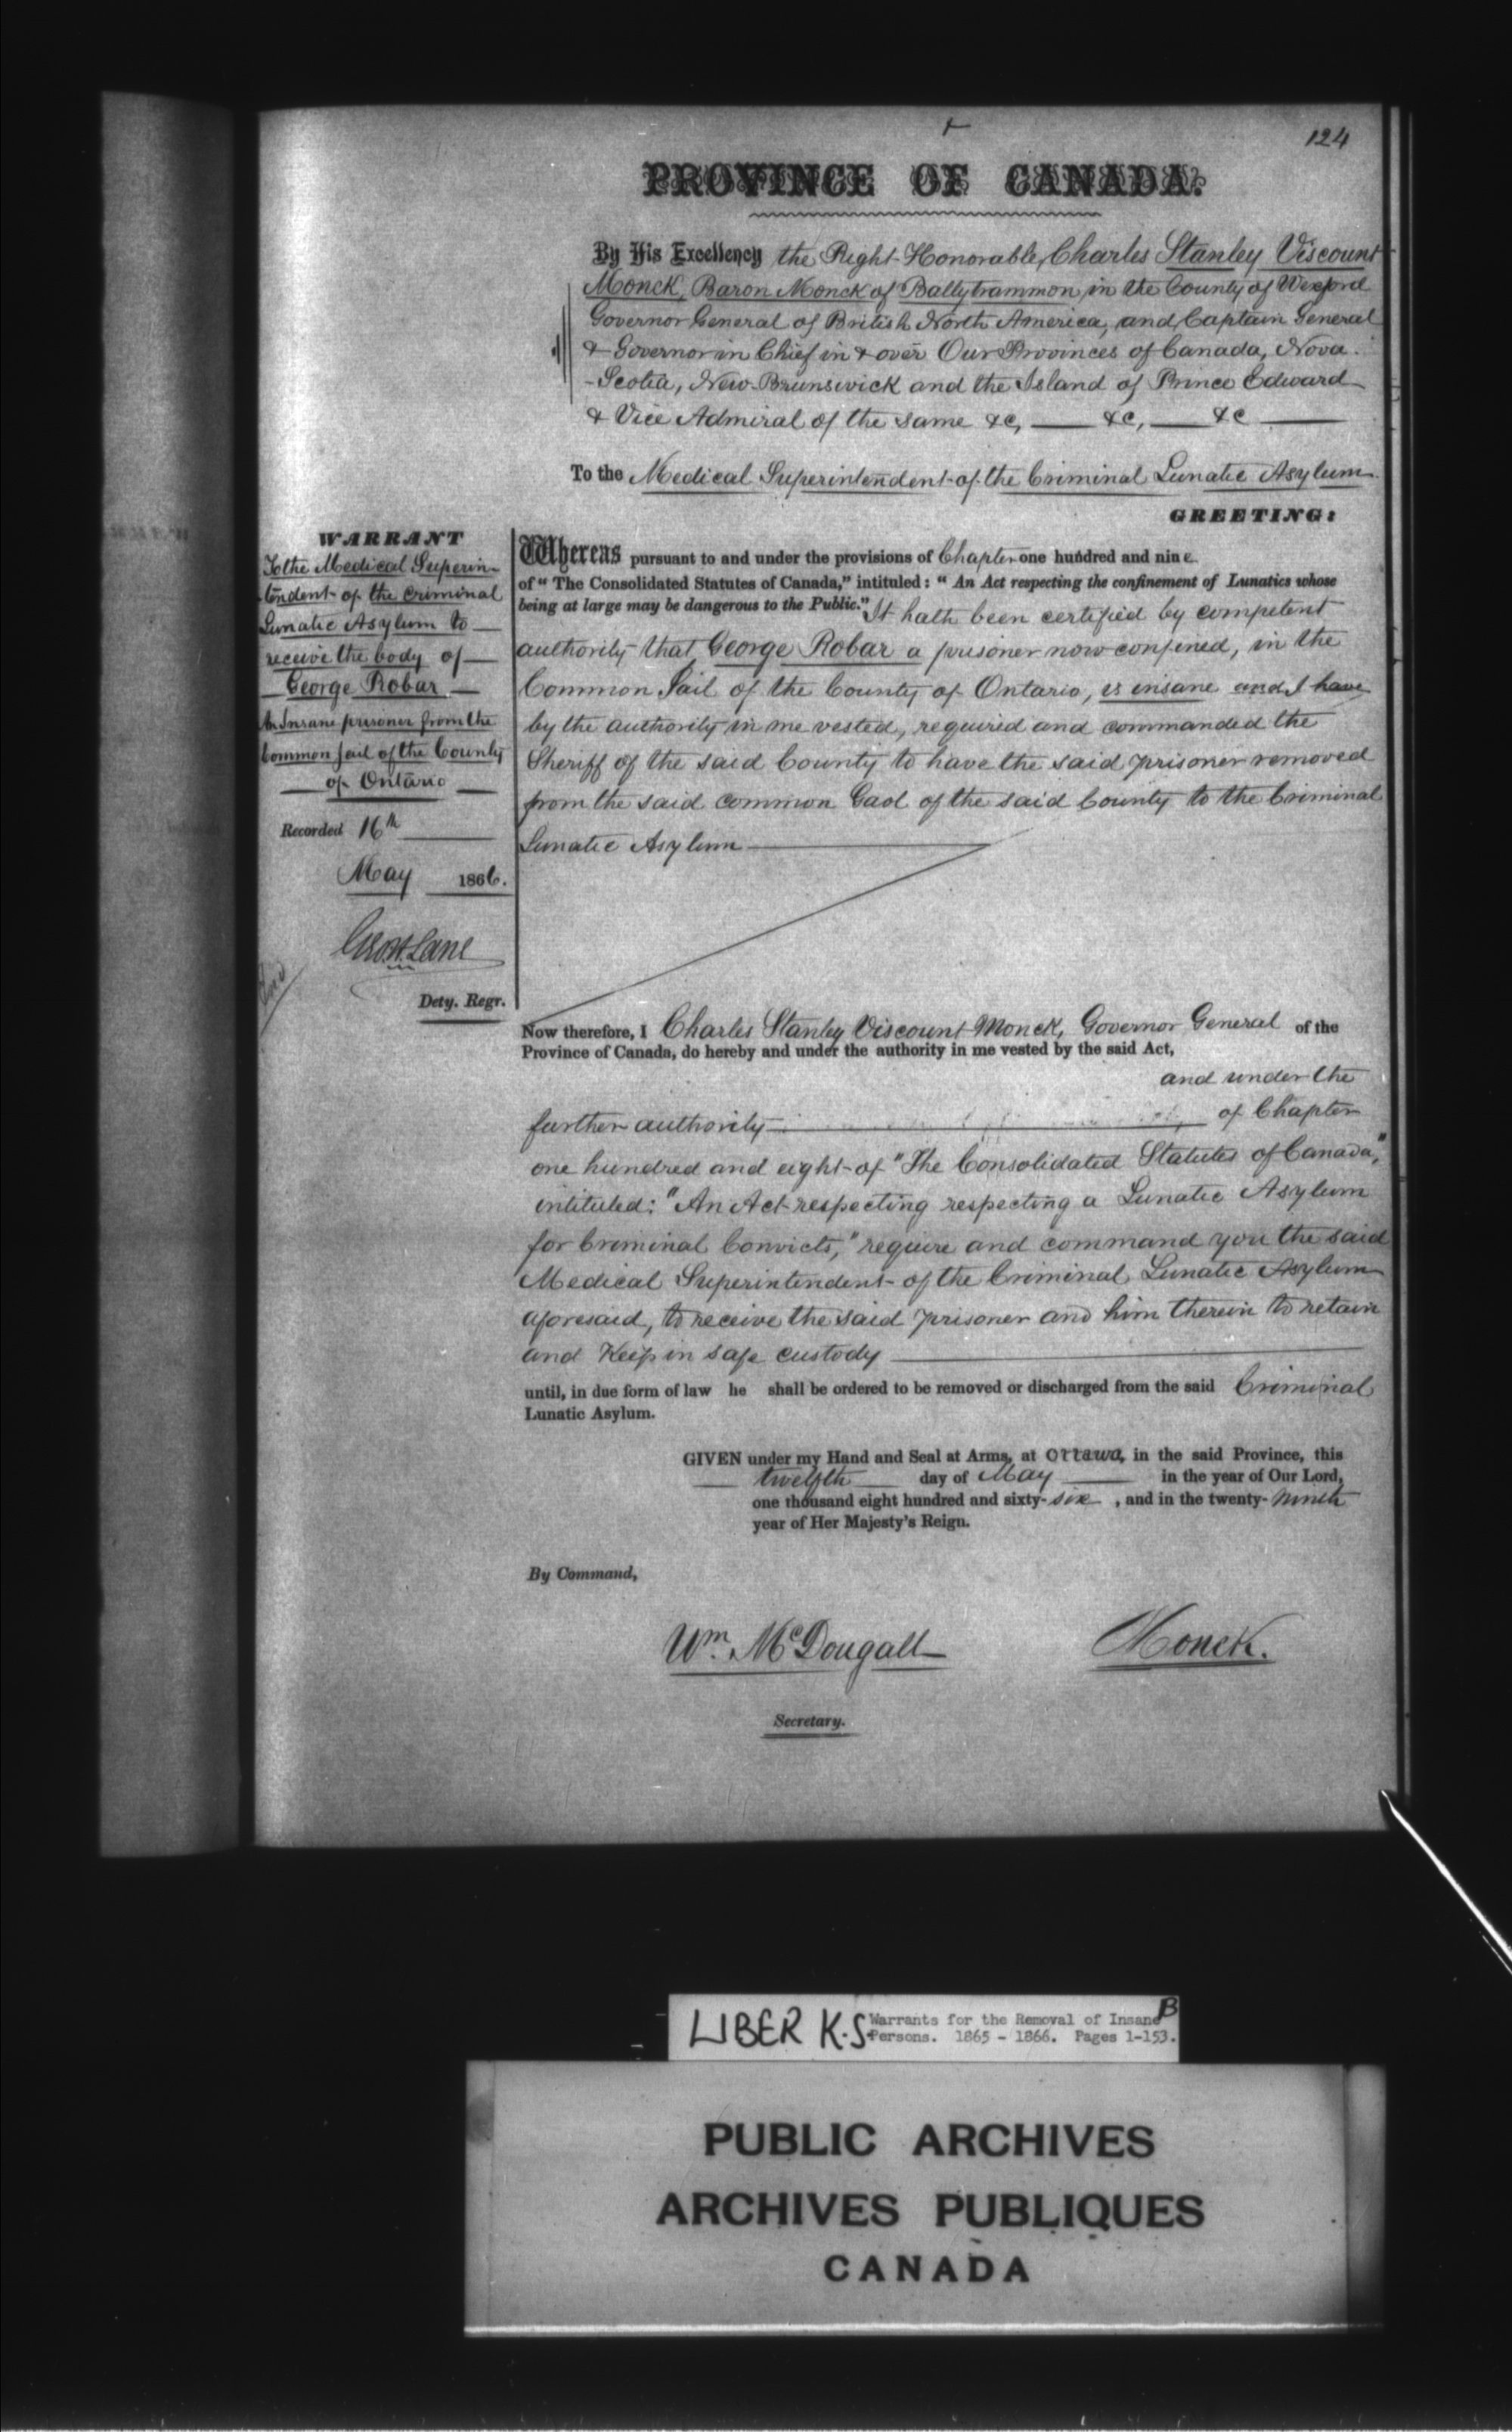 124
PROVINCE OF CANADA.
By His Excellency the Right Honorable Charles Stanley Viscount
Monck, Baron Monck of Ballytrammon in the County of Wexford
Governor General of British North America, and Captain General
& Governor in Chief in & over Our Provinces of Canada, Nova
-Scotia, New-Brunswick and the Island of Prince Edward
& Vice Admiral of the same &c, &c, &c
To the Medical Superintendent of the Criminal Lunatic Asylum
GREETING:
WARRANT
To the Medical Superin-
tendent of the Criminal
Lunatic Asylum to
receive the body of
George Robar
An Insane prisoner from the
Common Jail of the County
of Ontario
Recorded 16th
May 1866.
Geo. H. Lane
Dety. Regr.
Whereas pursuant to and under the provisions of Chapter one hundred and nine
of "The Consolidated Statutes of Canada," intituled: "An Act respecting the confinement of Lunatics whose
being at large may be dangerous to the Public." It hath been certified by competent
authority that George Robar a prisoner now confined, in the
Common Jail of the County of Ontario, is insane and I have
by the authority in me vested, required and commanded the
Sheriff of the said County to have the said prisoner removed
from the said common Gaol of the said County to the Criminal
Lunatic Asylum
Now therefore, I Charles Stanley Viscount Monck, Governor General of the
Province of Canada, do hereby and under the authority in me vested by the said Act,
and under the
further authority of Chapter
one hundred and eight of "The Consolidated Statutes of Canada,"
intituled: "An Act respecting respecting a Lunatic Asylum
for Criminal Convicts," require and command you the said
Medical Superintendent of the Criminal Lunatic Asylum
aforesaid, to receive the said prisoner and him therein to retain
and Keep in safe custody
until, in due form of law he shall be ordered to be removed or discharged from the said Criminal
Lunatic Asylum.
GIVEN under my Hand and Seal at Arms, at Ottawa, in the said Province, this
twelfth day of May in the year of Our Lord,
one thousand eight hundred and sixty-six, and in the twenty-ninth
year of Her Majesty's Reign.
By Command,
Wm. McDougall
Monck.
Secretary.
LIBER K.S. Warrants for the Removal of Insane B
Persons. 1865 - 1866. Pages 1-153.
PUBLIC ARCHIVES
ARCHIVES PUBLIQUES
CANADA